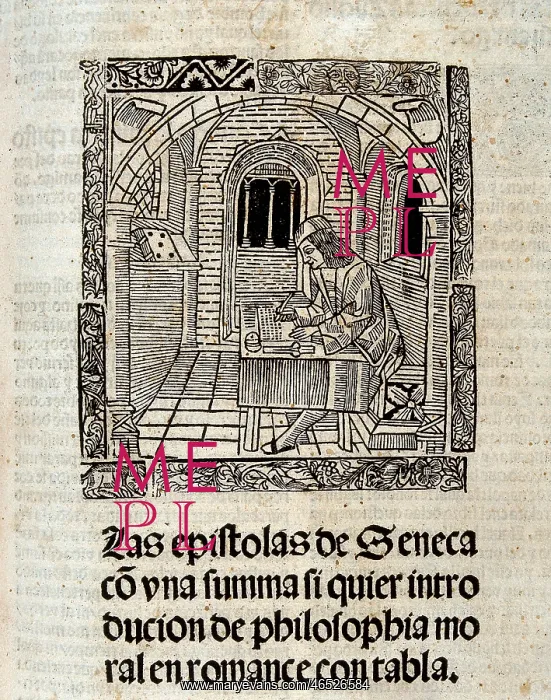 ME
PL
ME
PL
Las epistolas de Seneca
cõ vna summa si quier intro
ducion de philosophia mo
ral en romance con tabla.
www.maryevans.com/46526584